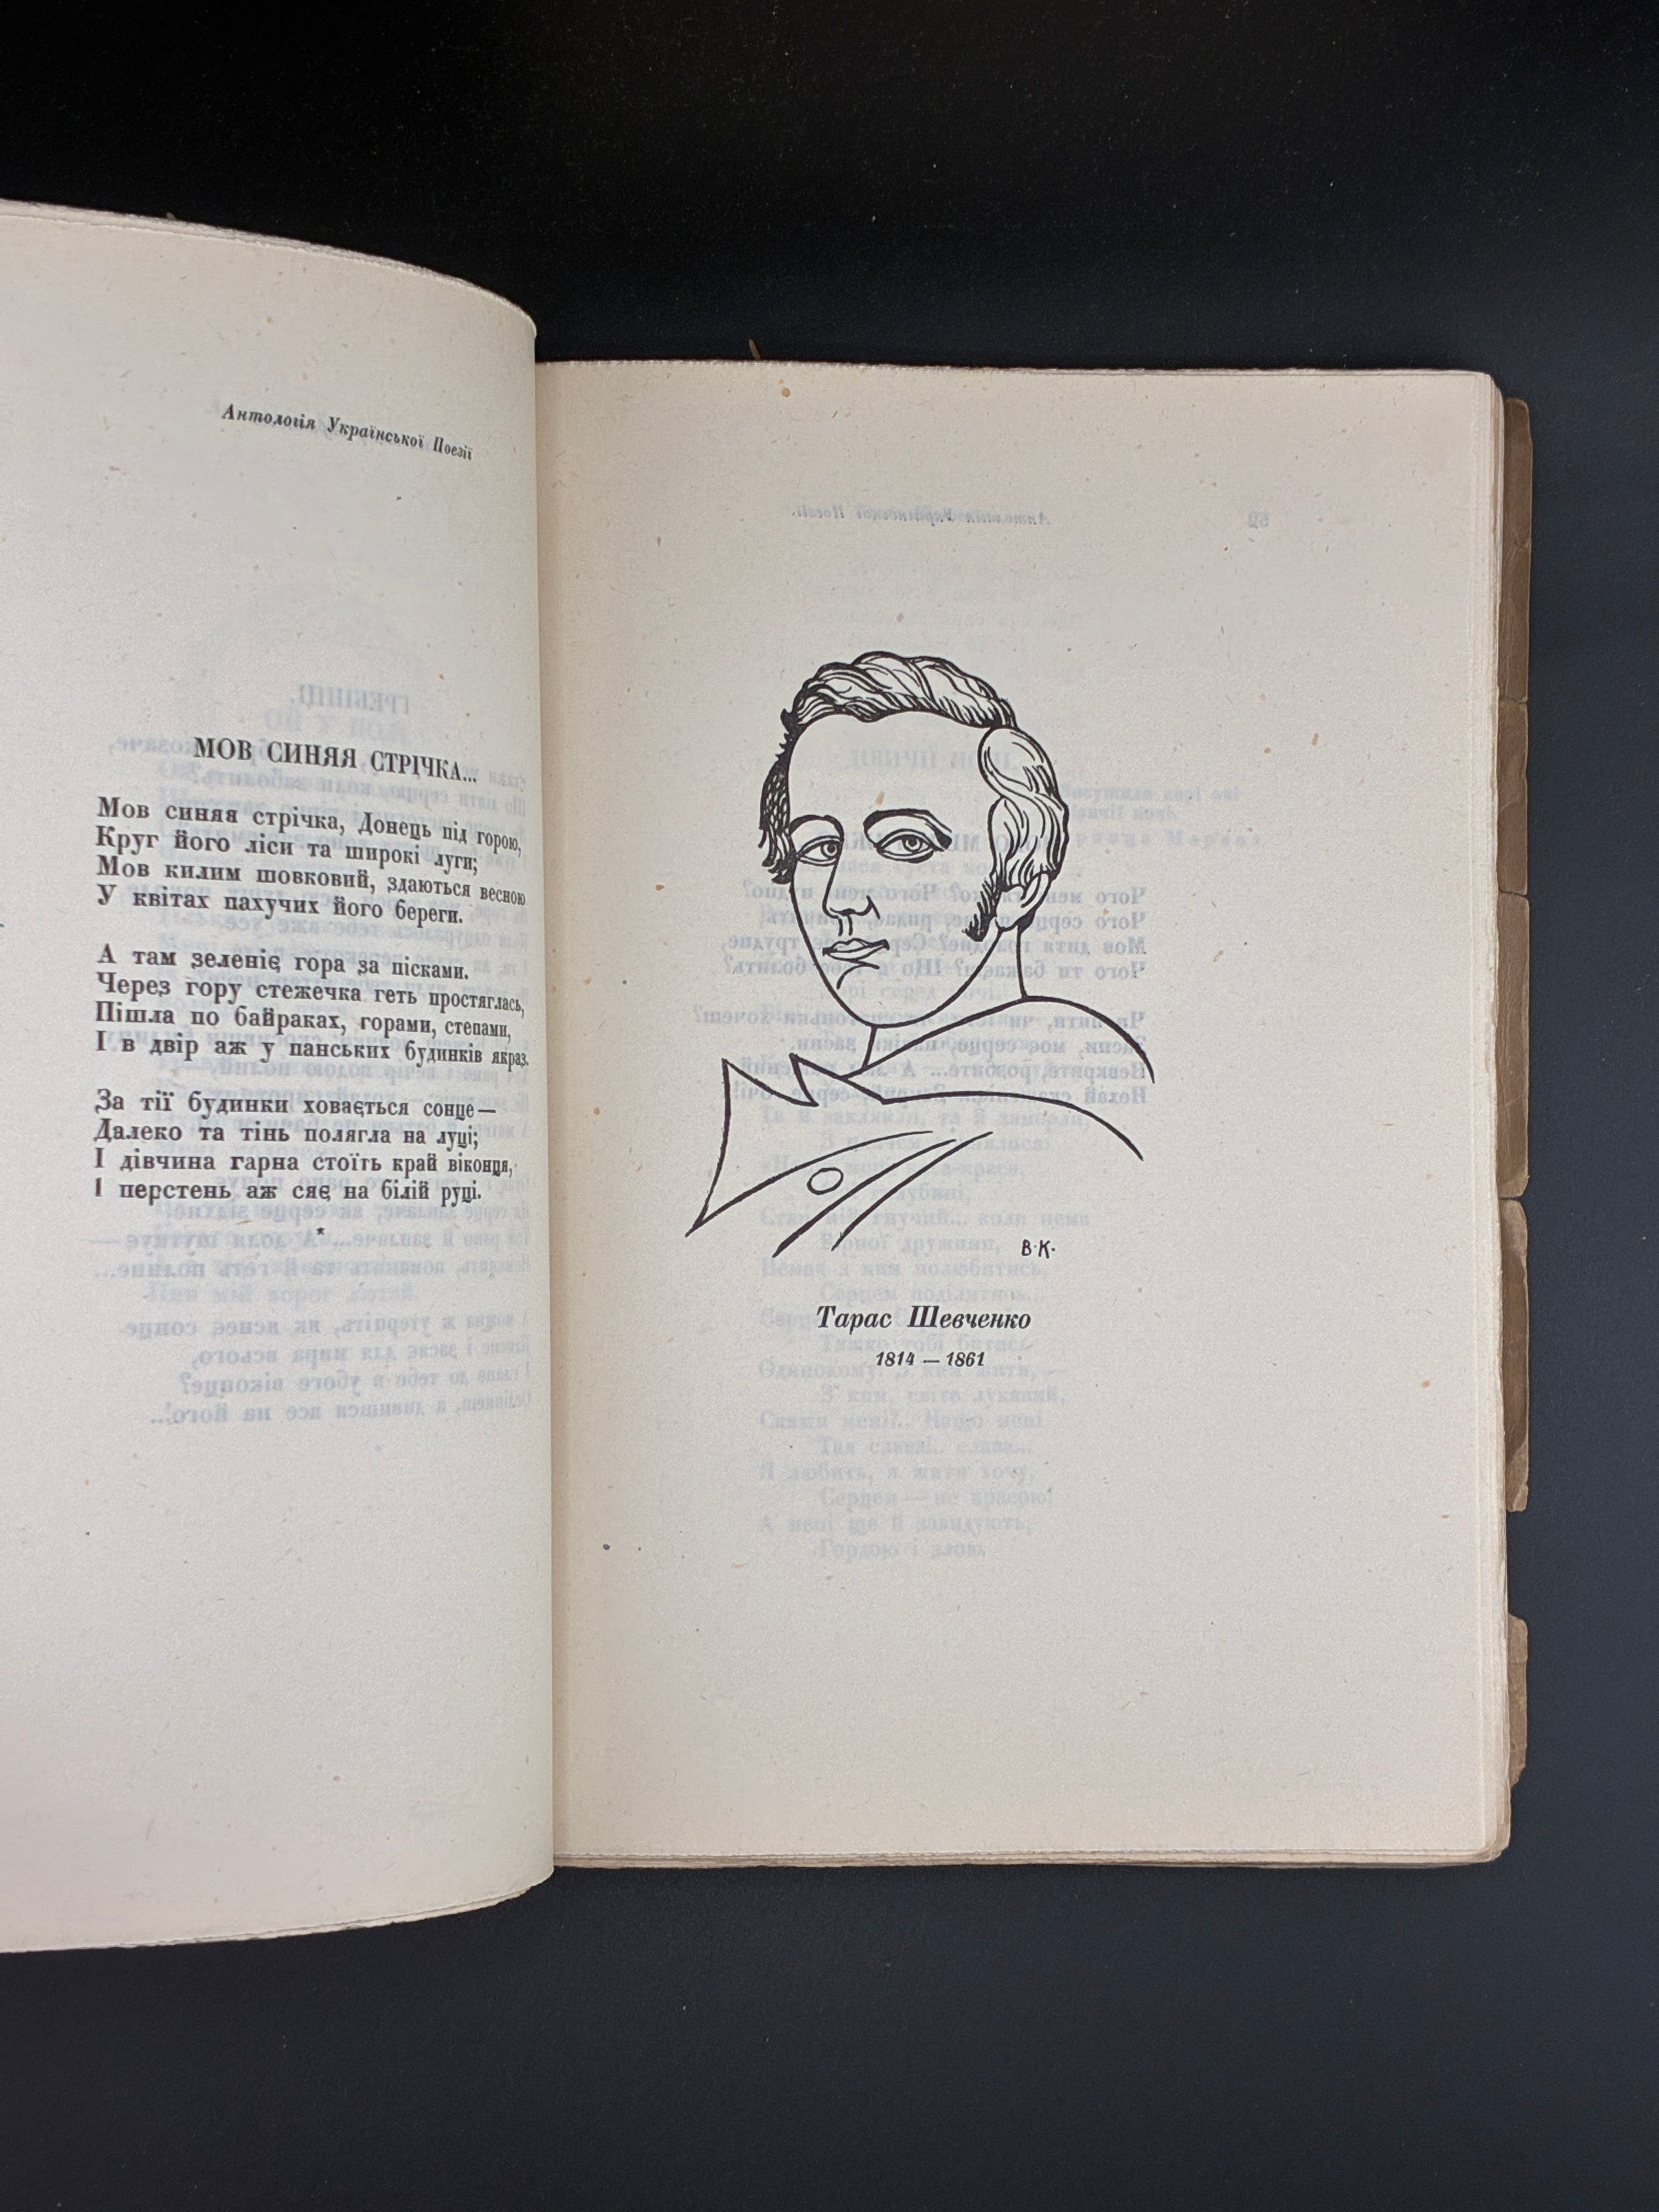 Антологія Української Поезії
МОВ СИНЯЯ СТРІЧКА...
Мов синяя стрічка, Донець під горою,
Круг його ліси та широкі луги;
Мов килим шовковий, здаються весною
У квітах пахучих його береги.
А там зеленіє гора за пісками.
Через гору стежечка геть простяглась,
Пішла по байраках, горами, степами,
І в двір аж у панських будинків якраз.
За тії будинки ховається сонце —
Далеко та тінь полягла на луці;
І дівчина гарна стоїть край віконця,
І перстень аж сяє на білій руці.
*
В·К·
Тарас Шевченко
1814 — 1861